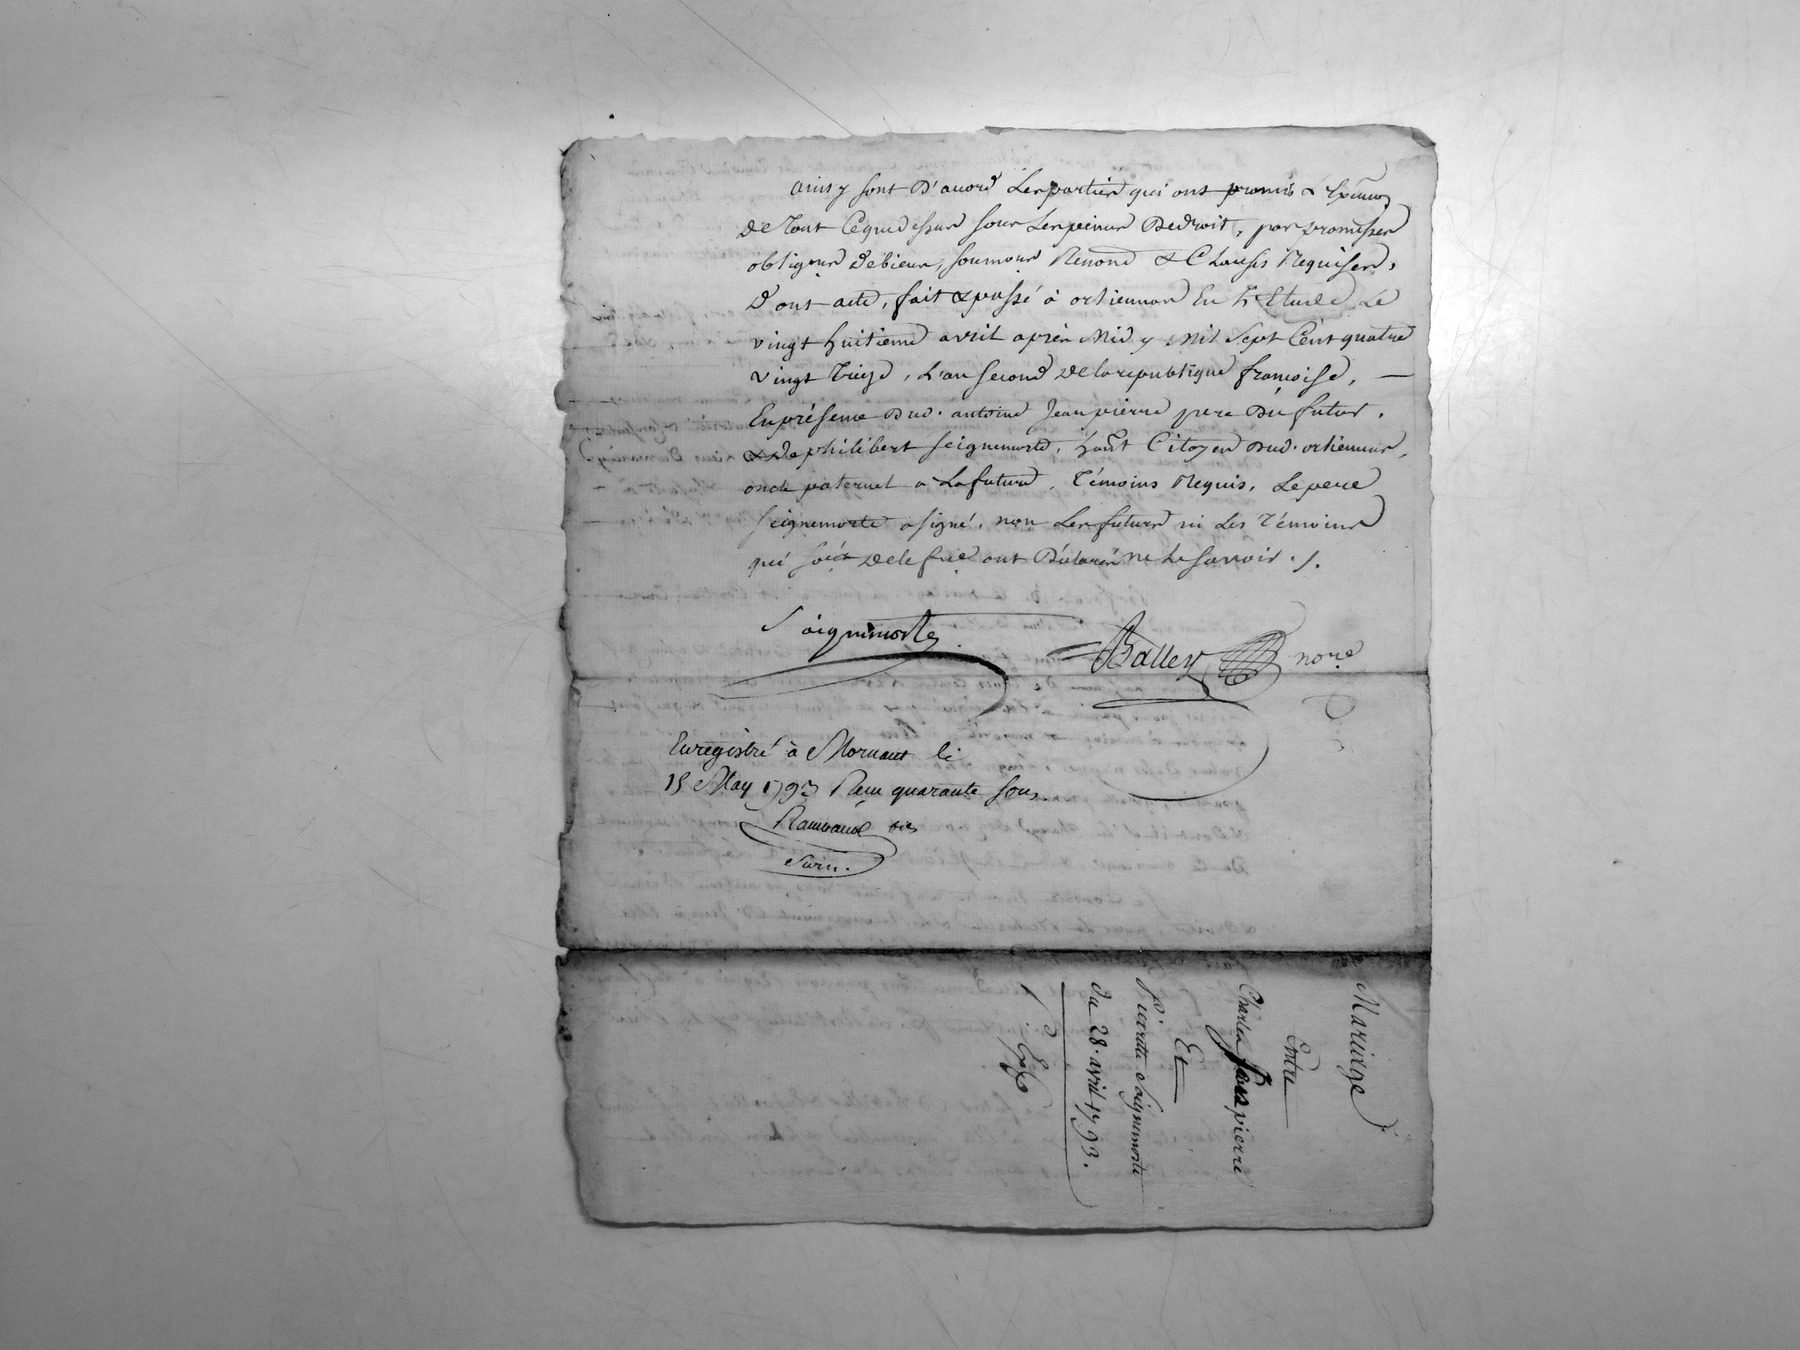 ainsy sont d'acord Les parties qui ont promis &
de tout Ce que dessus sous Les peines De droit, par promesses
obligons de biens, soumons Renond & Clauses Requises,
D'ont acte, fait & passé à orliennas En L'Etude Le
vingt huitieme avril après Midy Mil Sept Cent quatre
vingt treize, L'an second De la republique françoise, —
En présence Dud. antoine Jeanpierre pere Du futur,
& de philibert seignemorte, Citoyen Dud. orliennas,
oncle paternel a La future, Témoins Requis, Le pere
seignemorte a signé, non Les futurs ni Les Témoins
qui de le fre ont Déclarés ne Le savoir ./.
Saignemorte
Balley nore
Enregistré à Mornant le
15 May 1793 Recu quarante sous.
Rambaud
Mariage
Entre
Charles Jean pierre
Et
Pierrette Saignemorte
du 28. avril 1793.